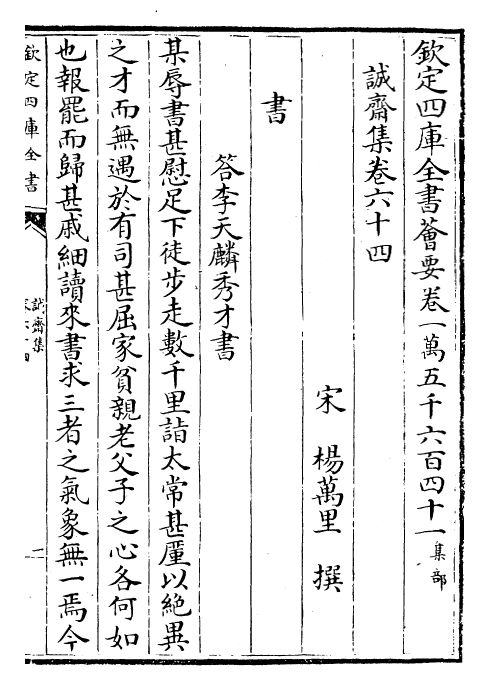 欽定四庫全書薈要卷一萬五千六百四十一集部
誠齋集卷六十四
宋 楊萬里 撰
書
答李天麟秀才書
某辱書甚慰足下徒步走數千里詣太常甚廑以絶異
之才而無遇於有司甚屈家貧親老父子之心各何如
也報罷而歸甚戚細讀來書求三者之氣象無一焉今
欽定四庫全書
誠齋集